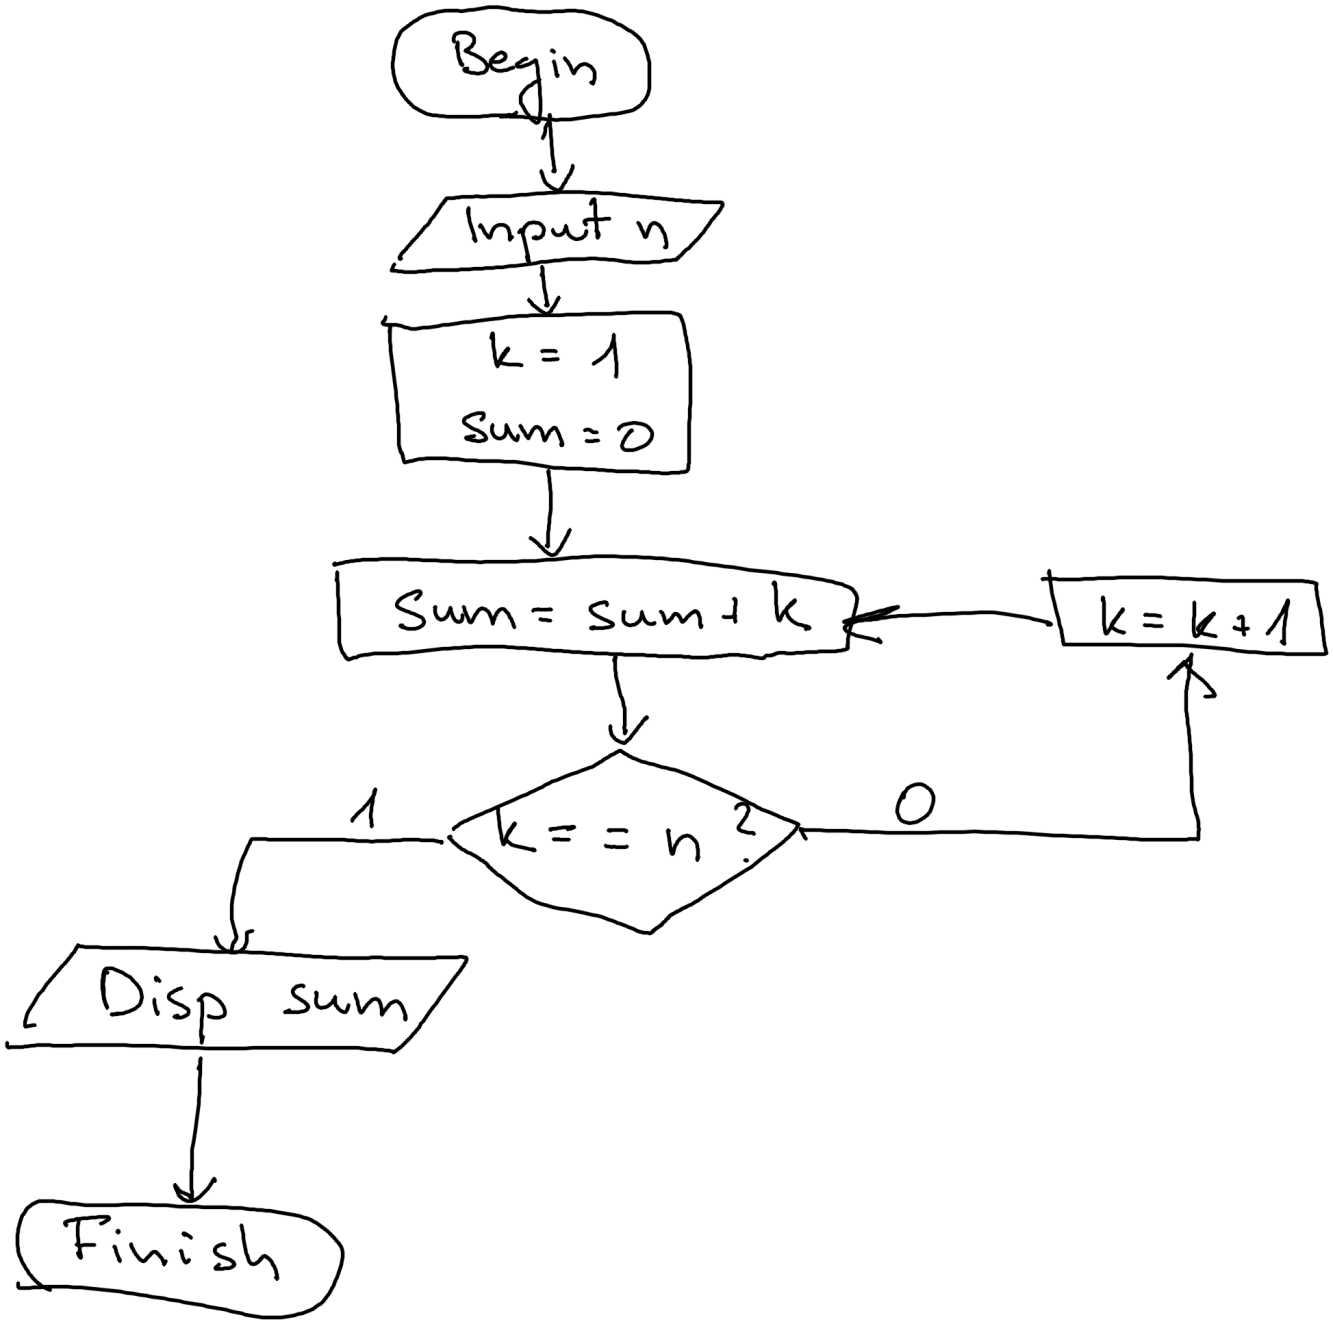 Begin
Input n
k = 1
sum = 0
Sum = sum + k
k = k + 1
1
k = = n ?
0
Disp sum
Finish